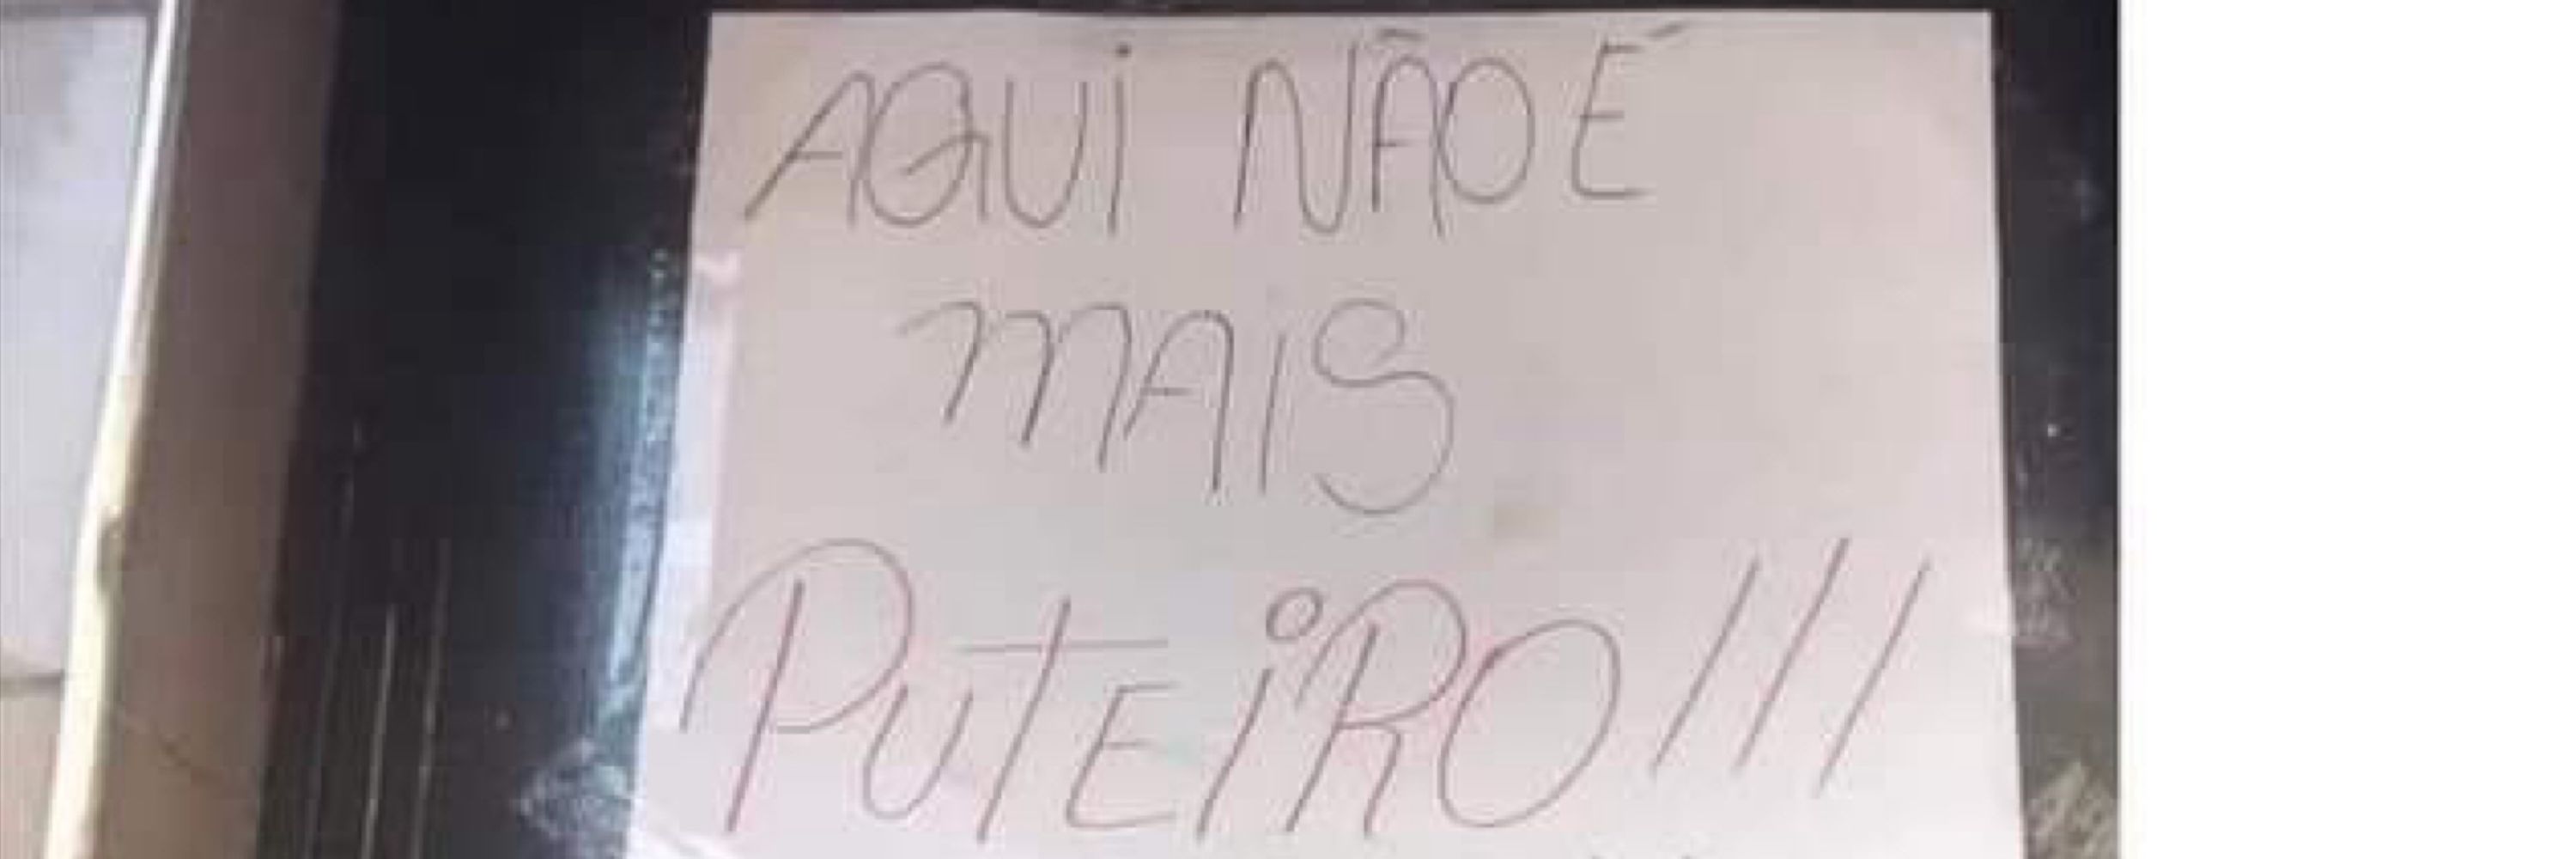 AQUI NÃO É
MAIS
PUTEIRO!!!